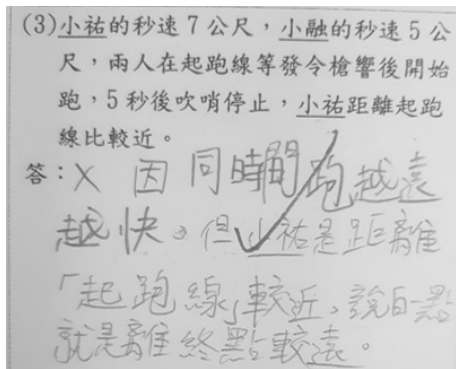 (3)小祐的秒速7公尺，小融的秒速5公
尺，兩人在起跑線等發令槍響後開始
跑，5秒後吹哨停止，小祐距離起跑
線比較近。
答：X 因同時間跑越遠
越快。但小祐是距離
「起跑線」較近，說白一點
就是離終點較遠。